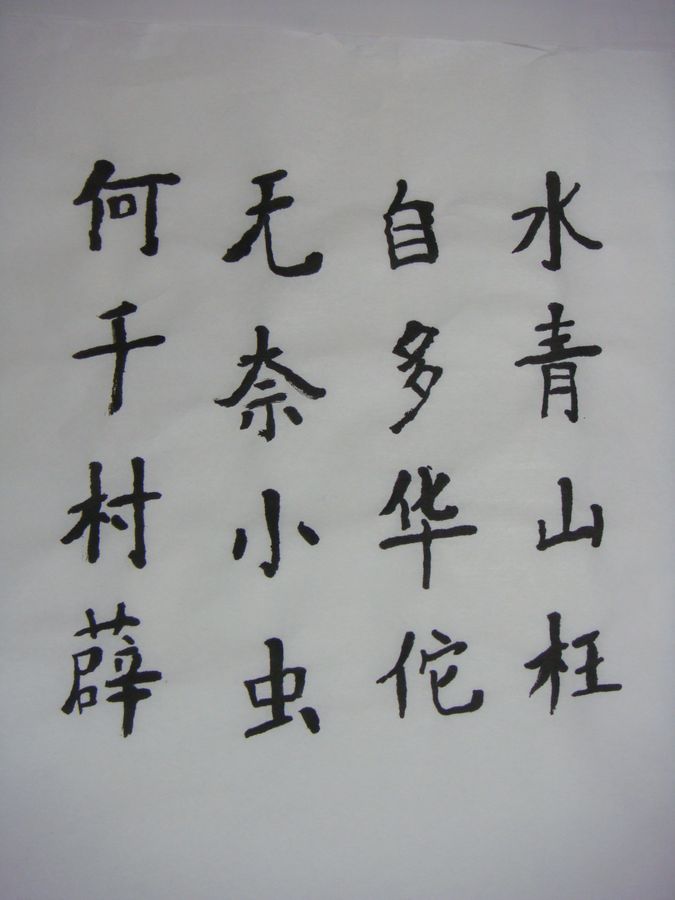 水青山枉
自多华佗
无奈小虫
何千村薜